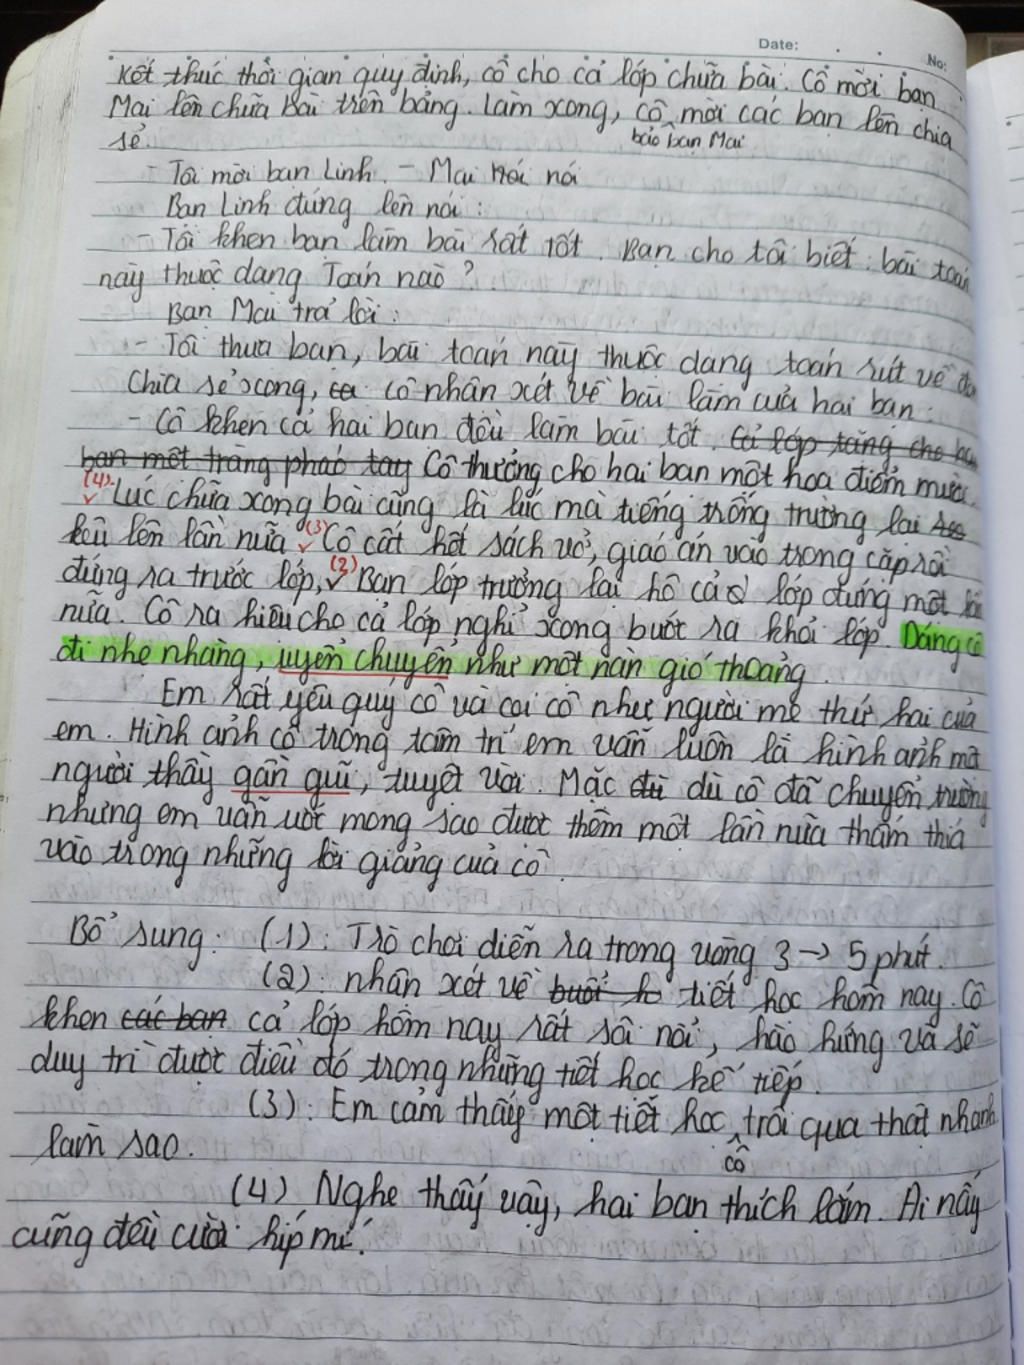 Date: . . No:
Kết thúc thời gian quy định, cô cho cả lớp chữa bài. Cô mời bạn
Mai lên chữa bài trên bảng. Làm xong, cô mời các bạn lên chia
bảo bạn Mai
sẻ.
- Tôi mời bạn Linh. - Mai nói
Bạn Linh đứng lên nói:
- Tôi khen bạn làm bài rất tốt. Bạn cho tôi biết: bài toán
này thuộc dạng Toán nào?
Bạn Mai trả lời:
- Tôi thưa bạn, bài toán này thuộc dạng toán rút về
Chia sẻ xong, cô nhận xét về bài làm của hai bạn:
- Cô khen cả hai bạn đều làm bài tốt. Cả lớp tặng cho hai
bạn một tràng pháo tay Cô thưởng cho hai bạn một hoa điểm mười.
(4) Lúc chữa xong bài cũng là lúc mà tiếng trống trường lại
kêu lên lần nữa. (3) Cô cất hết sách vở, giáo án vào trong cặp rồi
đứng ra trước lớp, (2) Bạn lớp trưởng lại hô cả lớp đứng một lần
nữa. Cô ra hiệu cho cả lớp nghỉ xong bước ra khỏi lớp. Dáng cô
đi nhẹ nhàng, uyển chuyển như một nàn gió thoảng.
Em rất yêu quý cô và coi cô như người mẹ thứ hai của
em. Hình ảnh cô trong tâm trí em vẫn luôn là hình ảnh một
người thầy gần gũi, tuyệt vời. Mặc dù dù cô đã chuyển trường
nhưng em vẫn ước mong sao được thêm một lần nữa thấm thía
vào trong những lời giảng của cô.
Bổ sung: (1): Trò chơi diễn ra trong vòng 3 → 5 phút.
(2): nhận xét về buổi h tiết học hôm nay. Cô
khen các bạn cả lớp hôm nay rất sôi nổi, hào hứng và sẽ
duy trì được điều đó trong những tiết học kế tiếp.
(3): Em cảm thấy một tiết học trôi qua thật nhanh
cô
làm sao.
(4) Nghe thấy vậy, hai bạn thích lắm. Ai nấy
cũng đều cười híp mí.